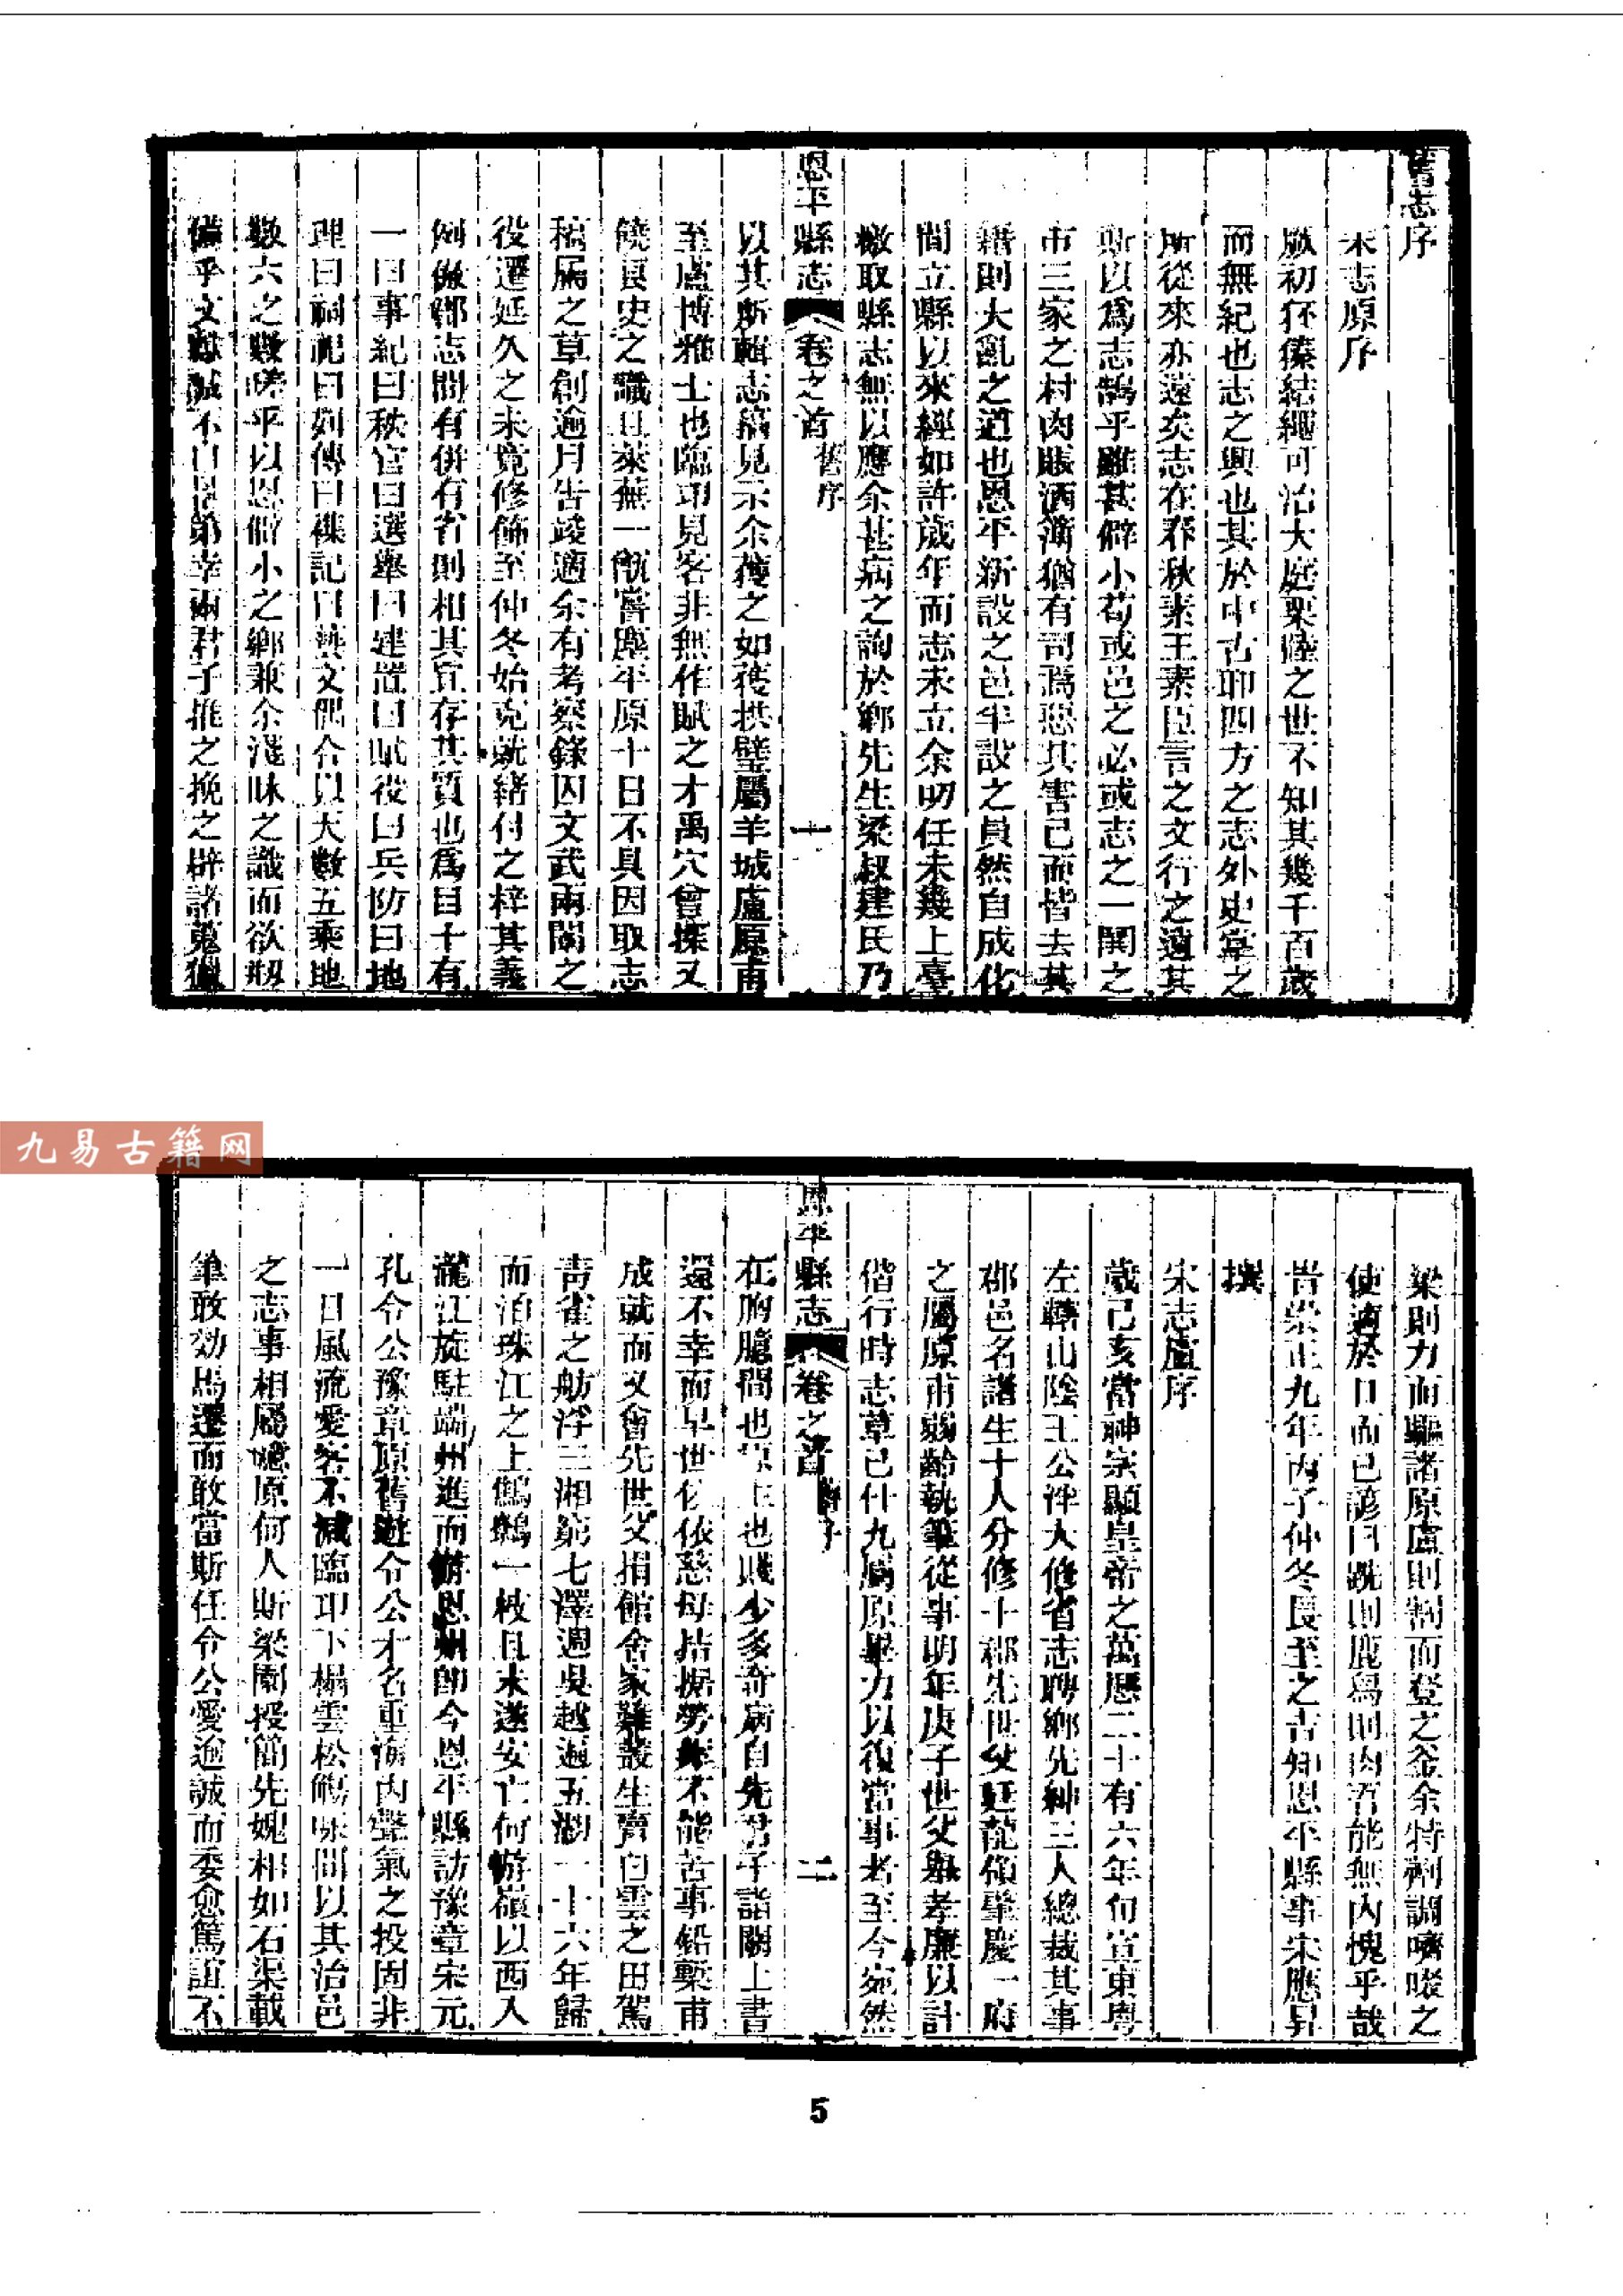 舊志序
宋志原序
厥初狉獉結繩可治大庭栗陸之世不知其幾千百歲
而無紀也志之興也其於中古耶四方之志外史掌之
所從來亦遠矣志在春秋素王素臣言之文行之遠其
斯以爲志鵠乎雖甚僻小苟或邑之必或志之一閧之
市三家之村肉賬洒簿猶有司焉惡其害己而皆去其
籍則大亂之道也恩平新設之邑半設之員然自成化
間立縣以來經如許歲年而志未立余叨任未幾上臺
檄取縣志無以應余甚病之詢於鄉先生梁叔建氏乃
恩平縣志 卷之首 舊序 一
以其所輯志稿見示余獲之如獲拱璧屬羊城盧原甫
至盧博雅士也臨邛見客非無作賦之才禹穴曾探又
饒良史之識且萊蕪一甑嘗塵平原十日不具因取志
稿屬之草創逾月告竣適余有考察錄囚文武兩闈之
役遷延久之未竟修飾至仲冬始克就緒付之梓其義
例倣郡志間有併有省則相其宜存其質也爲目十有
一曰事紀曰秩官曰選舉曰建置曰賦役曰兵防曰地
理曰祠祀曰列傳曰襍記曰藝文偶合以天數五乘地
數六之數嗟乎以恩僻小之鄉兼余淺昧之識而欲剏
備乎文獻誠不自量第幸兩君子推之挽之辟諸蒐獵
梁則力而驅諸原盧則割而登之釜余特劑調嚌啜之
使適於口而已諺曰跣則鹿爲則肉吾能無內愧乎哉
旹崇正九年丙子仲冬長至之吉知恩平縣事宋應昇
撰
宋志盧序
歲己亥當神宗顯皇帝之萬歷二十有六年旬宣東粤
左轄山陰王公泮大修省志聘鄉先紳三人總裁其事
郡邑名諸生十人分修十郡先世父廷龍領肇慶一府
之屬原甫弱齡執筆從事明年庚子世父舉孝廉以計
偕行時志草已什九屬原畢力以復當事者至今宛然
恩平縣志 卷之首 舊序 二
在胸臆間也原生也賤少多奇病自先君子詣闕上書
還不幸而早世依依慈母拮据勞瘁不能苦事鉛槧甫
成就而又會先世父捐館舍家難叢生賣白雲之田駕
青雀之舫浮三湘窮七澤週吳越遍五湖一十六年歸
而泊珠江之上鷦鷯一枝且未遂安亡何遊嶺以西入
瀧江旋駐端州進而游恩州卽今恩平縣訪豫章宋元
孔令公豫章原舊遊令公才名重海內聲氣之投固非
一日風流愛客不減臨邛下榻雲松觴咏間以其治邑
之志事相屬噫原何人斯梁園授簡先媿相如石渠載
筆敢効馬遷而敢當斯任令公愛逾誠而委愈篤誼不
九易古籍网
5